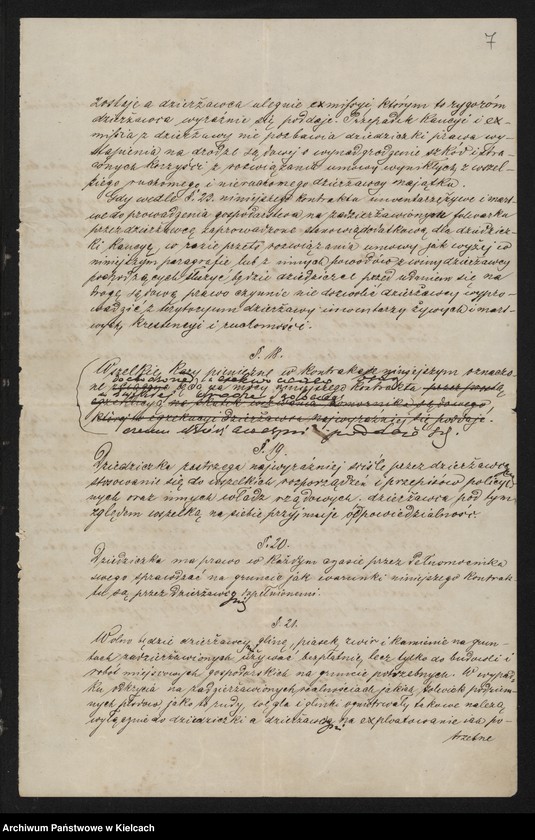 7
zostaje a dzierżawca ulegnie exmisyi, którym to rygorom
dzierżawca wyraźnie się poddaje. Przepadek kaucyi i ex-
misia z dzierżawy nie pozbawia dziedziczki prawa wy-
stąpienia na drodze sądowej o wynagrodzenie szkód i stra-
conych korzyści z rozwiązania umowy wynikłych z wszel-
kiego ruchomego i nieruchomego dzierżawcy majątku.
Gdy wedle §. 23. niniejszego kontraktu inwentarze żywe i mart-
we do prowadzenia gospodarstwa na zadzierżawionych folwarku
przez dzierżawcę zaprowadzone stanowią dodatkową dla dziedzicz-
ki kaucyę, w razie przeto rozwiązania umowy jak wyżej w
niniejszym paragrafie lub z innych powodów z winy dzierżawcy
pochodzących służyć będzie dziedziczce przed udaniem się na
drogę sądową prawo czynnie nie dozwolić dzierżawcy wypro-
wadzić z terytoryum dzierżawy inwentarzy żywych i mart-
wych, krestencyi i ruchomości.
§. 18.
Wszelkie kary pieniężne w kontrakcie niniejszym oznaczo-
ne będą na mocy niniejszego kontraktu
czemu
się poddaje
§. 19.
Dziedziczka zastrzega najwyraźniej ściśle przez dzierżawcę
stosowanie się do wszelkich rozporządzeń i przepisów policyj-
nych oraz innych władz rządowych. dzierżawca pod tym
względem wszelką na siebie przyjmuje odpowiedzialność.
§. 20.
Dziedziczka ma prawo w każdym czasie przez pełnomocnika
swego sprawdzać na gruncie jak warunki niniejszego kontrak-
tu są przez dzierżawcę wypełnionemi.
§. 21.
Wolno będzie dzierżawcy glinę, piasek, żwir i kamienie na grun-
tach zadzierżawionych używać bezpłatnie, lecz tylko do budowli i
robót miejscowych gospodarskich na gruncie potrzebnych. W wypad-
ku odkrycia na zadzierżawionych realnościach jakich kolwiek podziem-
nych płodów jako to rudy, węgla i glinki ogniotrwałej takowe należą
wyłącznie do dziedziczki a dzierżawca na exploatowanie ich po-
trzebne
Archiwum Państwowe w Kielcach